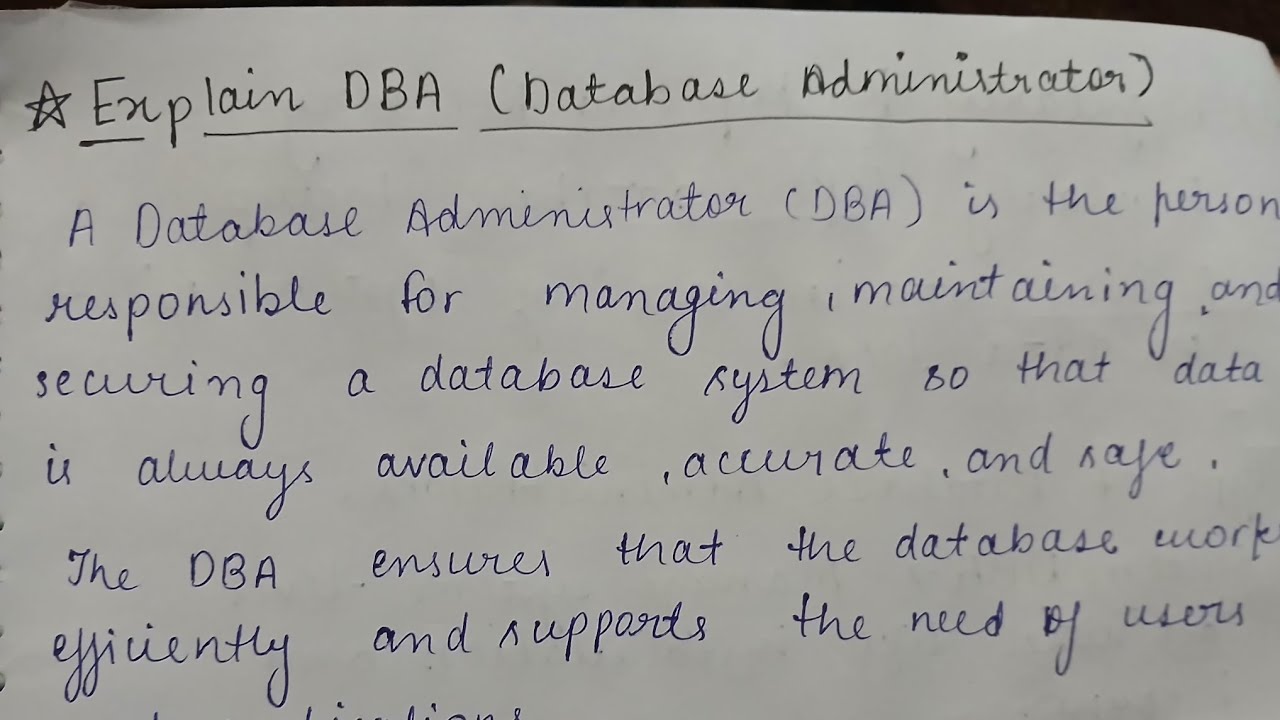 ☆ Explain DBA (Database Administrator)
A Database Administrator (DBA) is the person
responsible for managing, maintaining, and
securing a database system so that data
is always available, accurate, and safe.
The DBA ensures that the database work
efficiently and supports the need of users